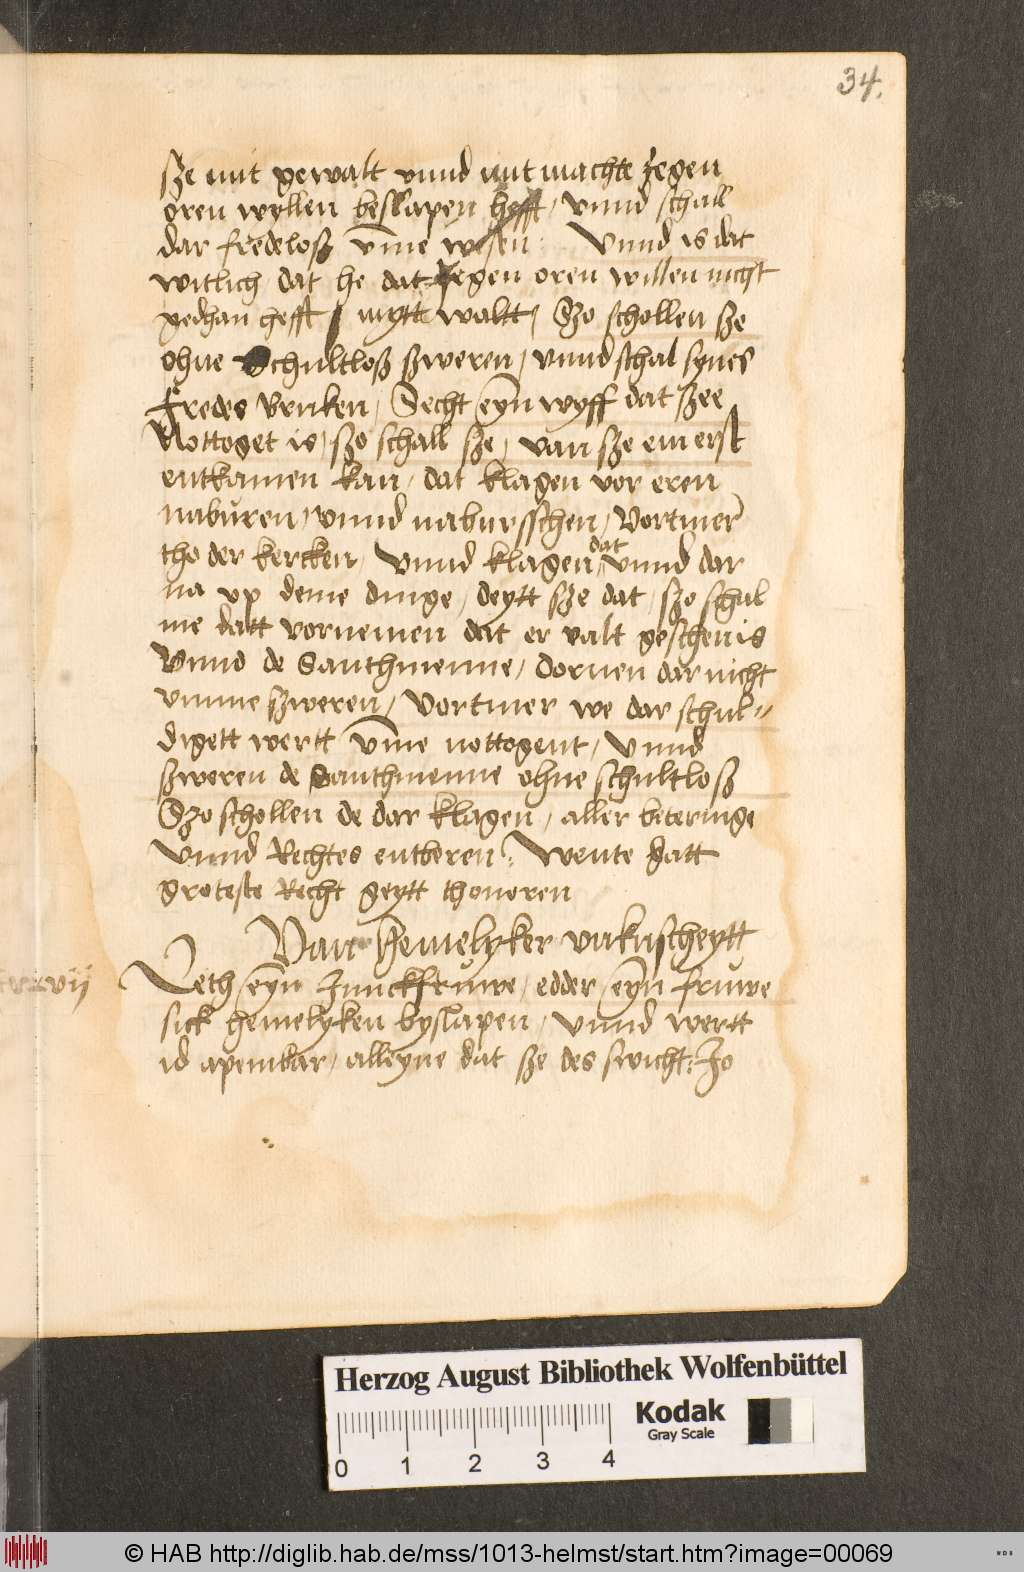 34.
sze mit gewalt vnnd mit machte jegen
oren wyllen beslapen hefft, vnnd schall
dar fredeloß vmme wesen: Vnnd is dat
witlich dat he dat jegen oren willen nicht
gedhan hefft mytt waltt, Szo schollen sze
ohne Schultloß szweren, vnnd schal synes
fredes bruken, Secht eyn wyff dat szee
Nottoget is, szo schall sze, van sze em erst
entkamen kan, dat klagen vor eren
naburen, vnnd naburschen, Vortmer
tho der kercken, Vnnd klagen dat, vnnd dar
na vp deme dinge, deytt sze dat, szo schal
me datt vornemen dat er valt geschen is
Vnnd de Santhmenne, dornen dar nicht
vmme szweren, Vortmer we dar schul-
digett wertt vmme nottogent, Vnnd
szweren de Santhmenne ohne schultloß
Szo schollen de dar klagen, aller beteringe
Vnnd Rechtes entberen: Wente Hatt
groteste Recht geytt thouoren
Van hemelyker vnkuscheytt
Leth eyn Junckfruwe, edder eyn fruwe
sick hemelyken byslapen, Vnnd wertt
id apembar, alleyne dat sze des swicht: Jo
Herzog August Bibliothek Wolfenbüttel
Kodak
Gray Scale
0 1 2 3 4
© HAB http://diglib.hab.de/mss/1013-helmst/start.htm?image=00069